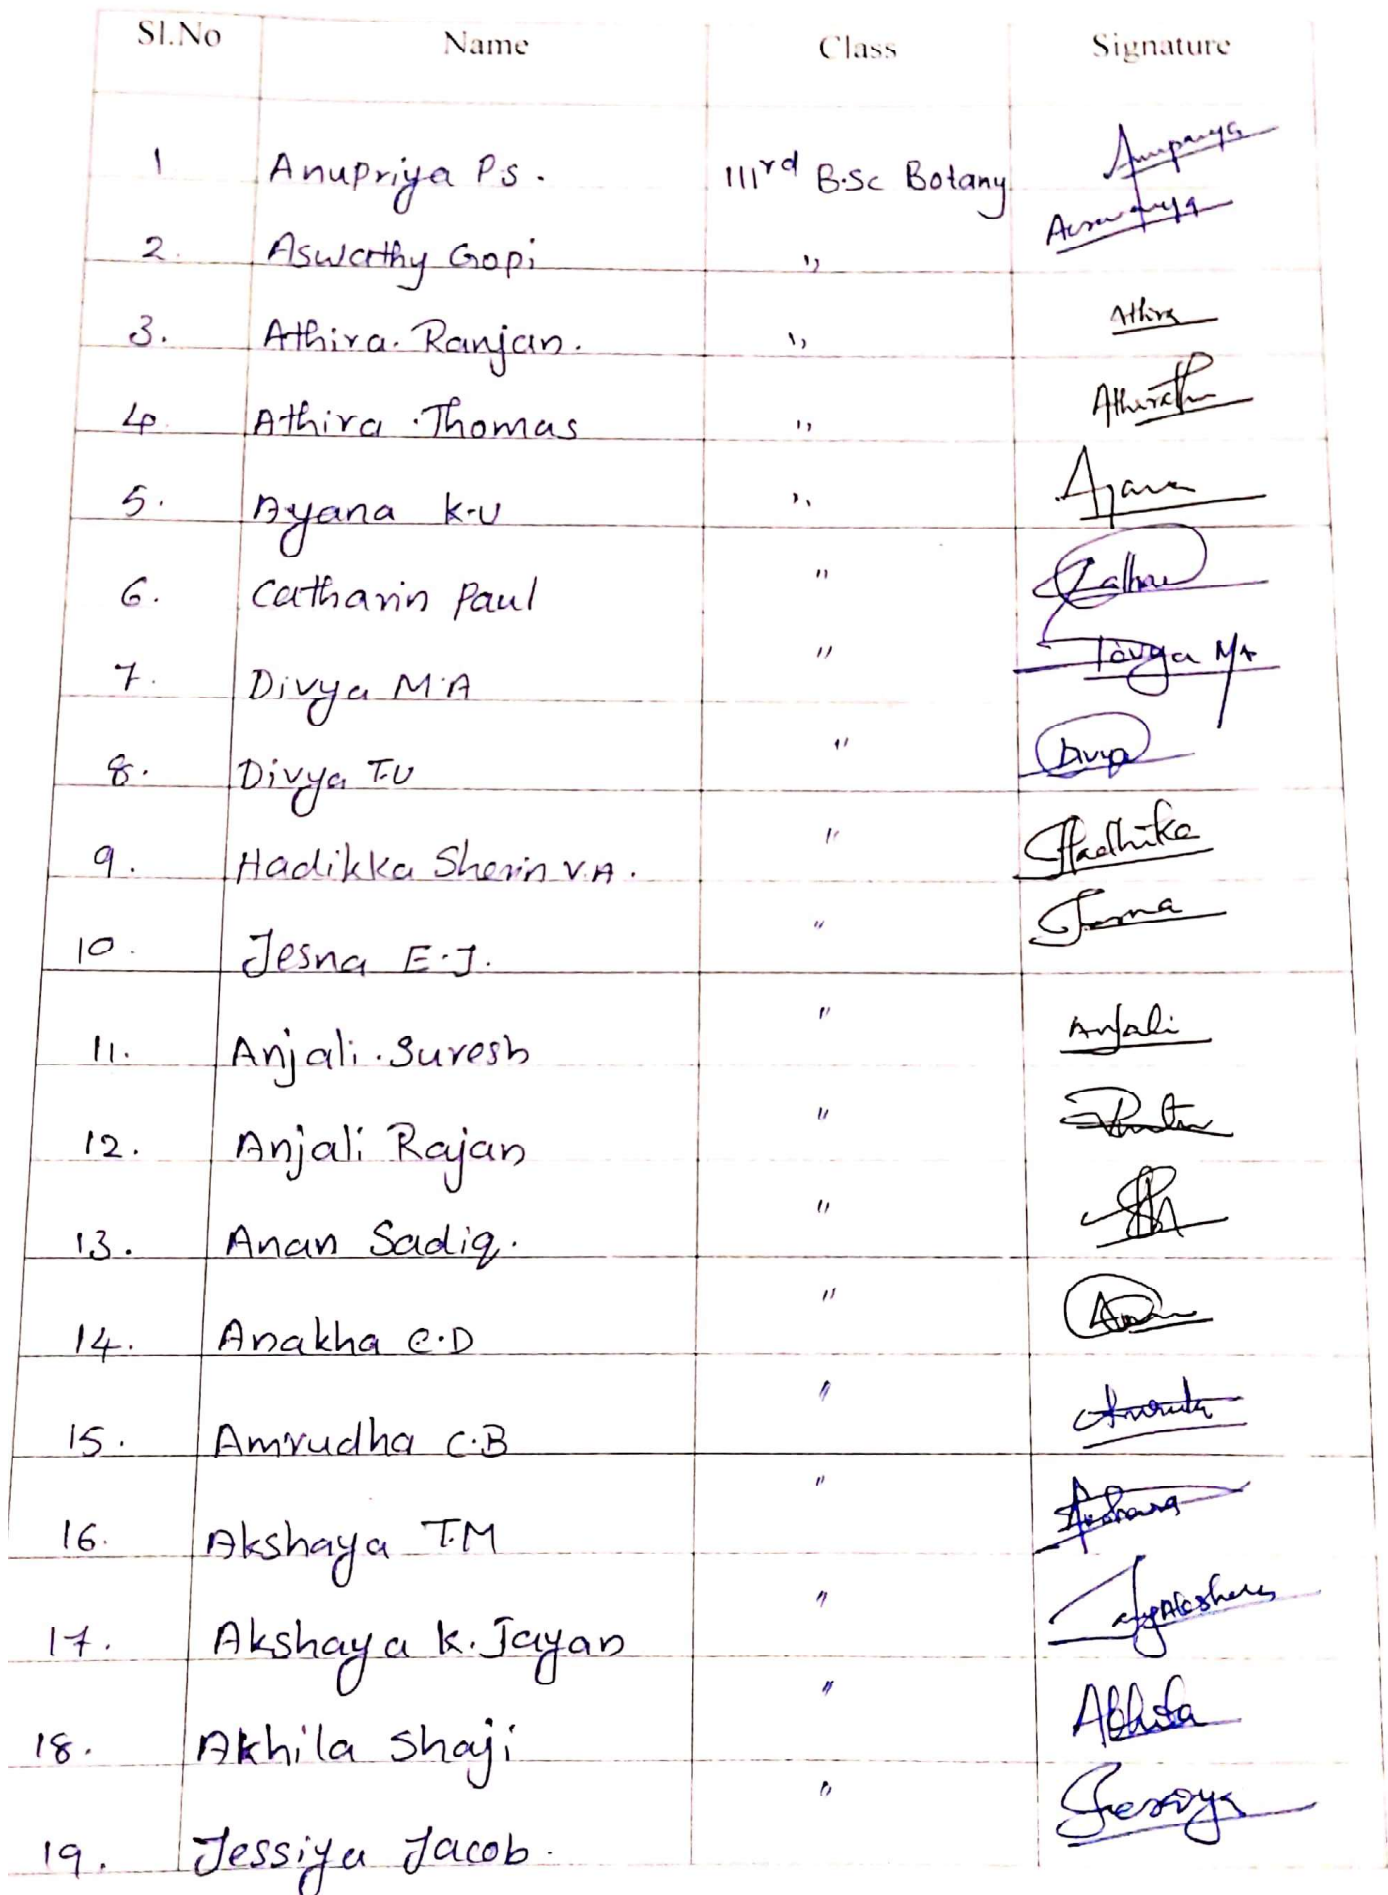 Sl.No Name Class Signature
1 Anupriya P.S. IIIrd B.Sc Botany
2. Aswathy Gopi ,,
3. Athira. Ranjan. ,, Athira
4. Athira .Thomas ,,
5. Ayana K.U ,, Ayana
6. Catharin Paul "
7. Divya M.A " Divya MA
8. Divya T.U " Divya
9. Hadikka Sherin V.A. " Hadhika
10. Jesna E.J. " Jesna
11. Anjali. Suresh " Anjali
12. Anjali Rajan "
13. Anan Sadiq. "
14. Anakha C.D "
15. Amrudha C.B "
16. Akshaya T.M "
17. Akshaya K. Jayan "
18. Akhila Shaji " Akhila
19. Jessiya Jacob. "